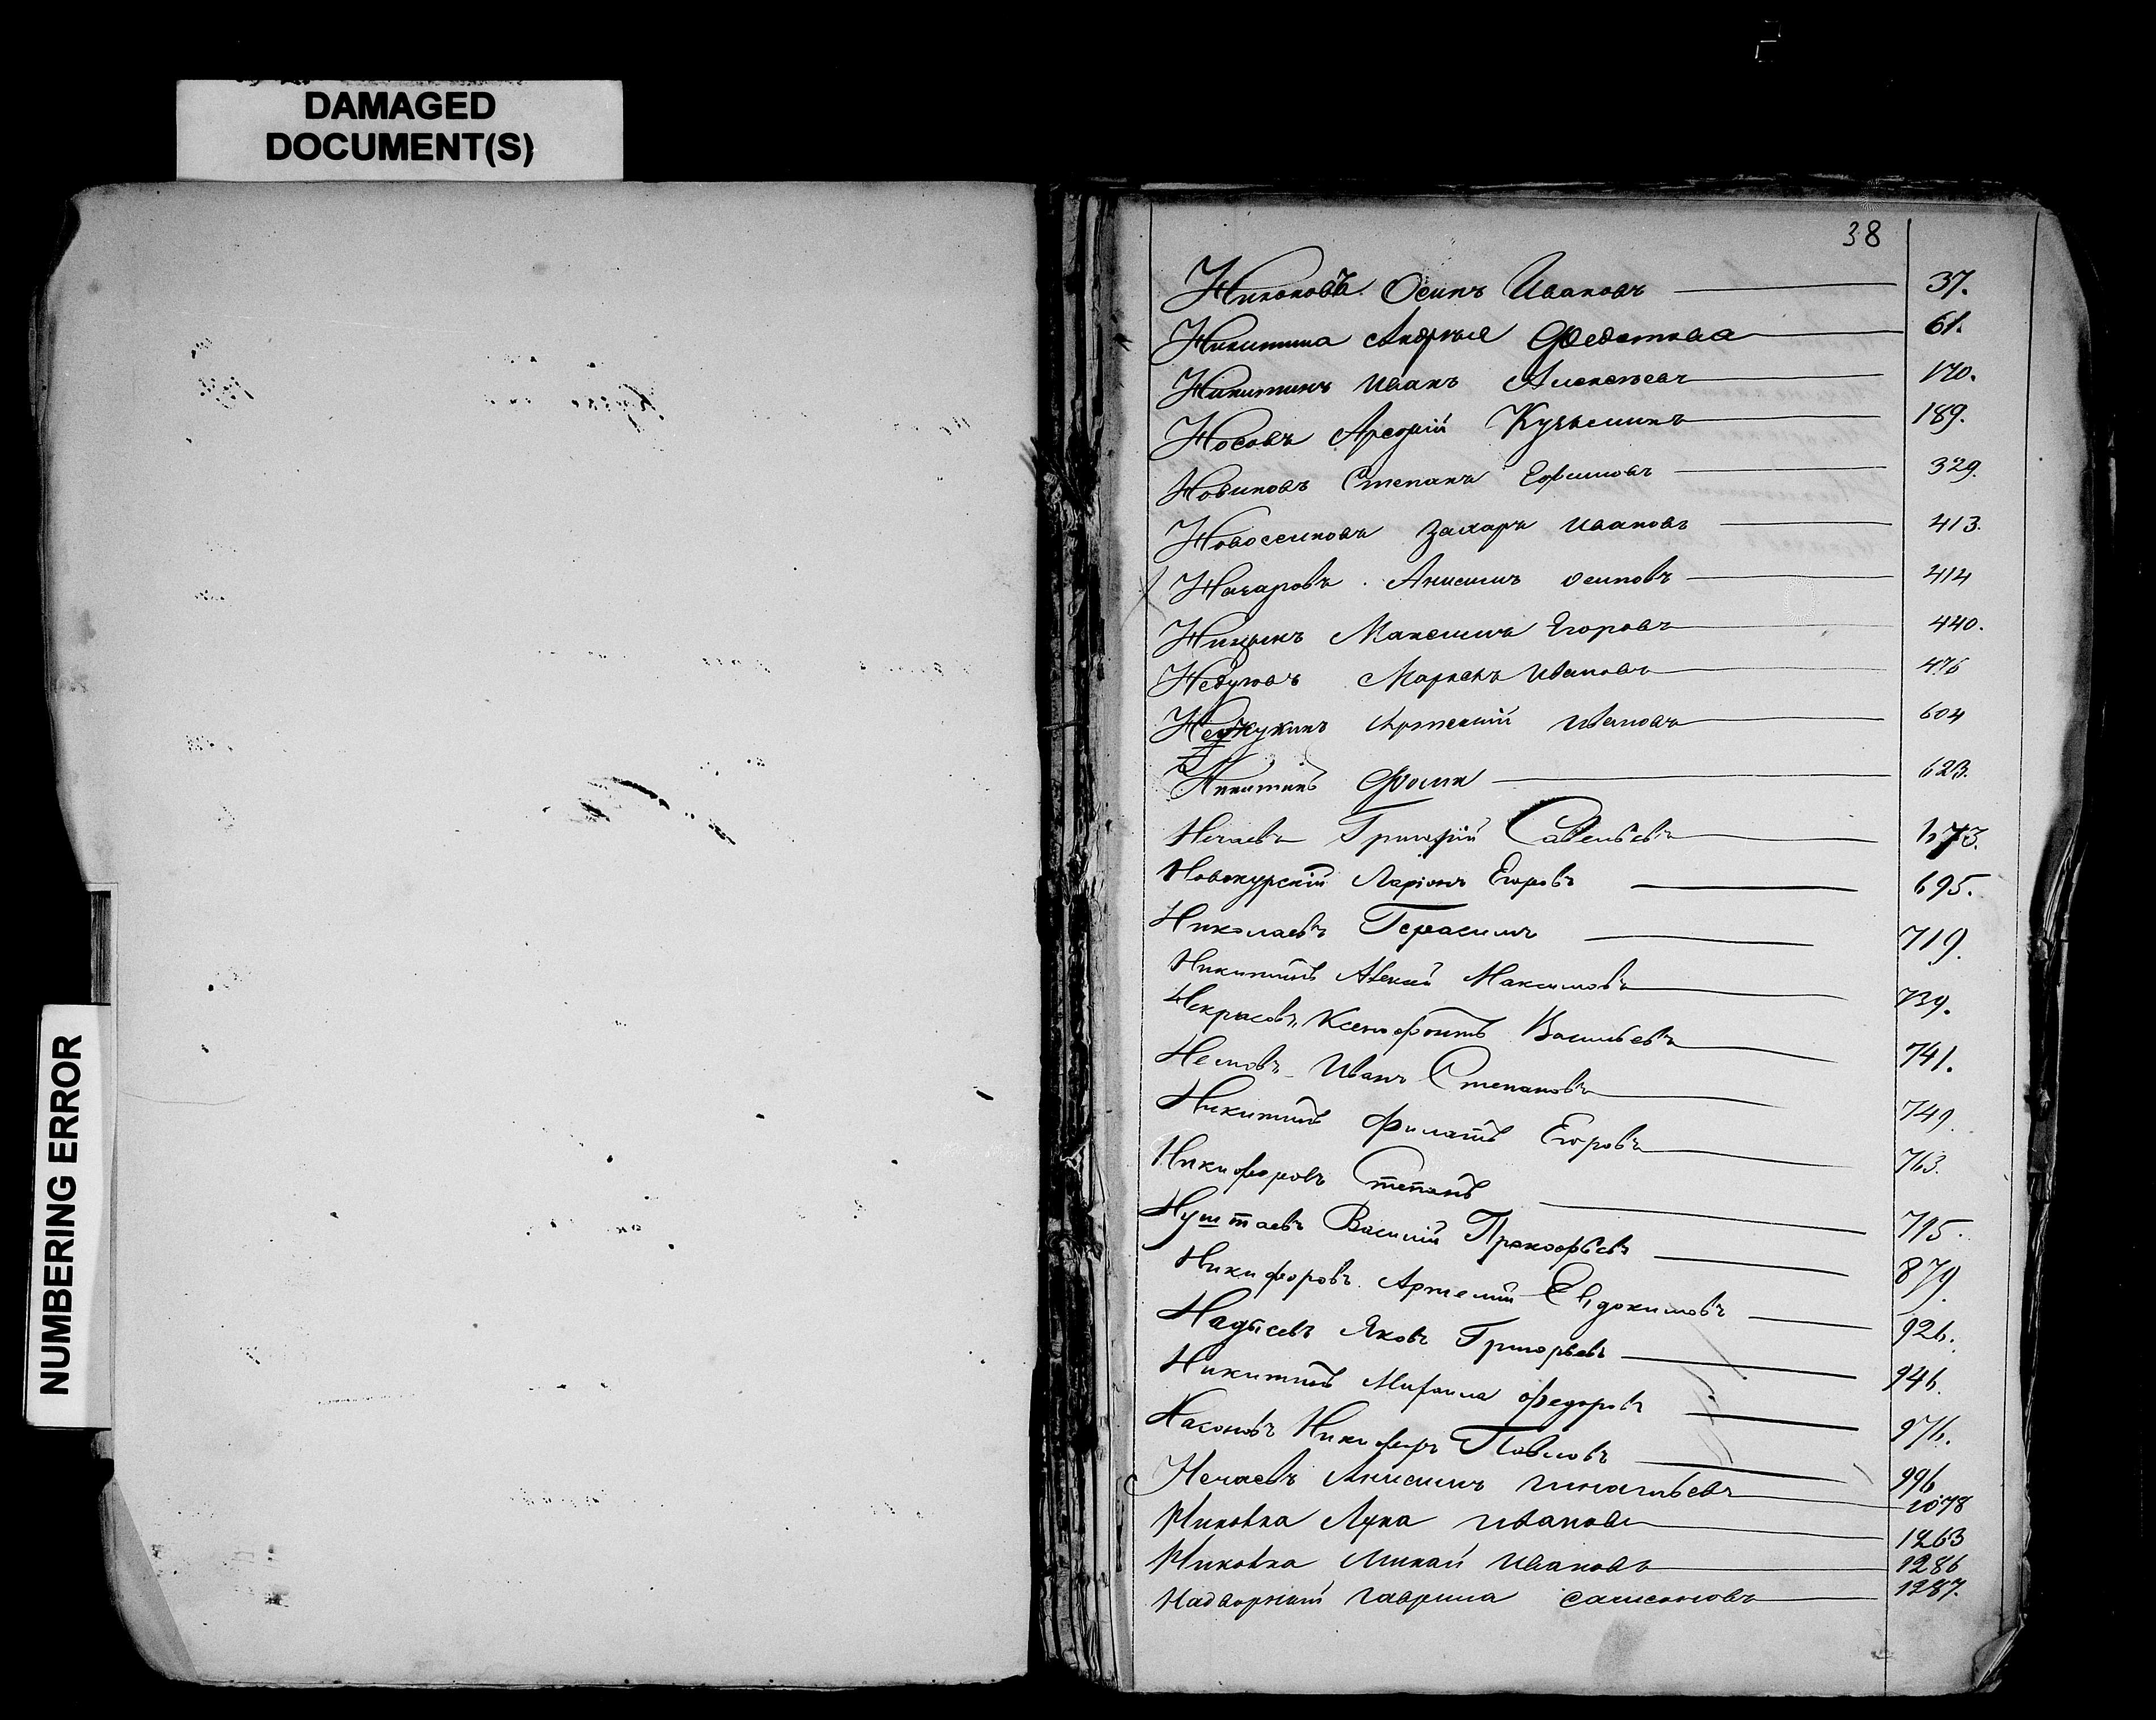 DAMAGED
DOCUMENT(S)
NUMBERING ERROR
38
Никоновъ Осипъ Ивановъ 37.
Никитина Андрея Федотова 61.
Никитинъ Иванъ Алексѣевъ 170.
Носовъ Арсеній Кузьминъ 189.
Новиковъ Степанъ Ефимовъ 329.
Новоселиковъ Захаръ Ивановъ 413.
Назаровъ Анисимъ Осиповъ 414
Максимъ Егоровъ 440.
Недуговъ Маркелъ Ивановъ 476
Ивановъ 604
Никитинъ Фома 623.
Нечаевъ Григорій Савельевъ 673.
Новокурскій Ларіонъ Егоровъ 695.
Николаевъ Герасимъ 719.
Никитинъ Алексѣй Максимовъ 739.
Некрасовъ Ксенофонтъ Васильевъ 741.
Иванъ Степановъ 749.
Никитинъ Филатъ Егоровъ 763.
Никифоровъ Степанъ 795.
Нуштаевъ Василій Прокофьевъ 879.
Никифоровъ Артемій Евдокимовъ 926.
Яковъ Григорьевъ 946.
Никитинъ Михаила Федоровъ 976.
Насоновъ Никифоръ Павловъ 996
Нечаевъ Анисимъ Игнатьевъ 1078
Никовка Лука Ивановъ 1263
Никовка Минай Ивановъ 1286
Надворный Гаврила Самсоновъ 1287.